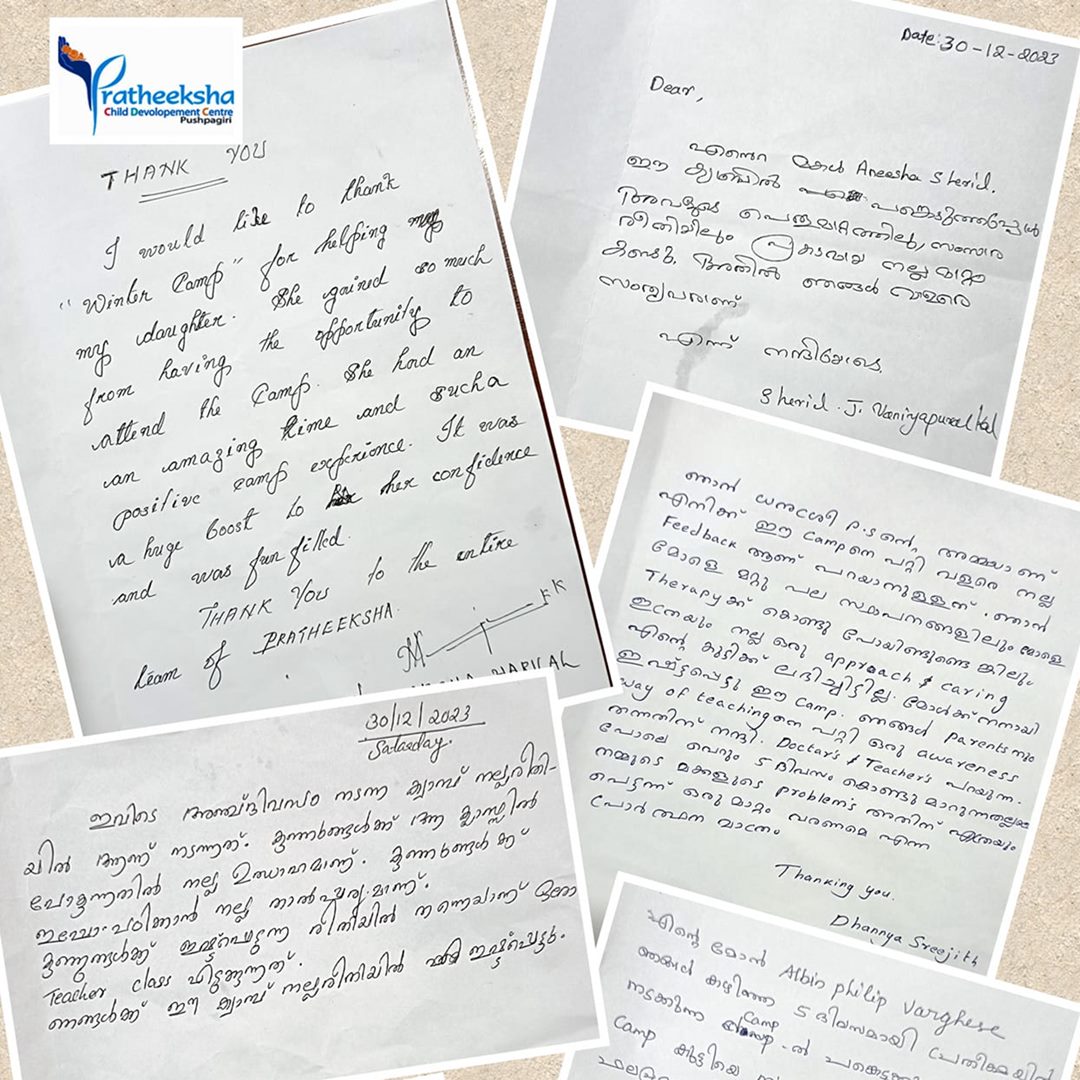 Pratheeksha
Child Developement Centre
Pushpagiri
THANK YOU
I would like to thank
"Winter Camp" for helping my
my daughter. She gained so much
from having the opportunity to
attend the Camp. She had an
an amazing time and such a
positive camp experience. It was
a huge boost to her confidence
and was fun filled.
THANK YOU to the entire
team of PRATHEEKSHA.
Date: 30-12-2023
Dear,
എന്റെ മകൾ Aneesha Sherid.
ഈ ക്യാമ്പിൽ പങ്കെടുത്തപ്പോൾ
അവളുടെ പെരുമാറ്റത്തിലും, സംസാര
രീതിയിലും പ്രകടമായ നല്ല മാറ്റം
കണ്ടു. അതിൽ ഞങ്ങൾ വളരെ
എന്ന് നന്ദിയോടെ
Sherid. J.
ഞാൻ ധനുശ്രീ P.S ന്റെ, അമ്മയാണ്
എനിക്ക് ഈ Camp നെ പറ്റി വളരെ നല്ല
Feedback ആണ് പറയാനുള്ളത്. ഞാൻ
മോളെ മറ്റു പല സ്ഥാപനങ്ങളിലും മോളെ
Therapy ക്ക് കൊണ്ടു പോയിണ്ടുണ്ടെങ്കിലും
ഇത്രയും നല്ല ഒരു approach & caring
എന്റെ കുട്ടിക്ക് ലഭിച്ചിട്ടില്ല. മോൾക്ക് നന്നായി
ഇഷ്ട്ടപ്പെട്ടു ഈ Camp. ഞങ്ങൾ parents നും
way of teaching നെ പറ്റി ഒരു awareness
തന്നതിന് നന്ദി. Doctor's & Teacher's പറയുന്ന
പോലെ വെറും 5 ദിവസം കൊണ്ടു മാറുന്നതല്ല
നമ്മുടെ മക്കളുടെ problem's അതിന് എത്രയും
പെട്ടന്ന് ഒരു മാറ്റം വരണമെ എന്ന
പ്രാർത്ഥന മാത്രം
Thanking you.
Dhannya Sreejith
30/12/2023
Satarday.
ഇവിടെ അഞ്ച് ദിവസം നടന്ന ക്യാമ്പ് നല്ലരീതി-
യിൽ ആണ് നടന്നത്. കുഞ്ഞുങ്ങൾക്ക് ആ ക്ലാസ്സിൽ
പോകുന്നതിൽ നല്ല ഉത്സാഹമാണ്. കുഞ്ഞുങ്ങൾക്ക്
പഠിക്കാൻ നല്ല താൽപ്പര്യമാണ്.
കുഞ്ഞുങ്ങൾക്ക് ഇഷ്ടപ്പെടുന്ന രീതിയിൽ തന്നെയാണ് ഓരോ
Teacher class എടുക്കുന്നത്.
ഞങ്ങൾക്ക് ഈ ക്യാമ്പ് നല്ലരീതിയിൽ ഇഷ്ടപ്പെട്ടു.
എന്റെ മോൻ Albin philip Varghese
ഞങ്ങൾ കഴിഞ്ഞ 5 ദിവസമായി പ്രതീക്ഷയിൽ
നടക്കുന്ന Camp-ൽ
Camp കുട്ടിയെ